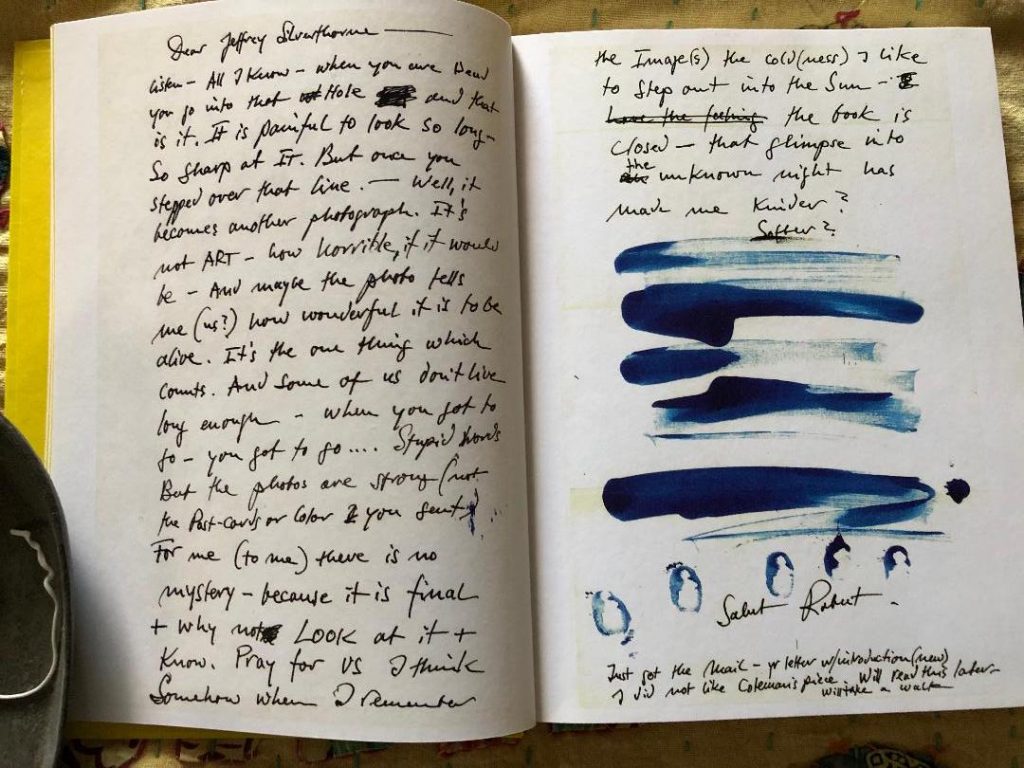 Dear Jeffrey Silverthorne —
Listen – All I know – when you are Dead
you go into that Hole and that
is it. It is painful to look so long –
So sharp at IT. But once you
stepped over that line. — Well, it
becomes another photograph. It's
not ART – how horrible, if it would
be – And maybe the photo tells
me (us?) how wonderful it is to be
alive. It's the one thing which
counts. And some of us don't live
long enough – when you got to
go – you got to go .... Stupid Words
But the photos are strong (not
the Post-cards or Color I you sent)
For me (to me) there is no
mystery – because it is final
+ why not LOOK at it +
Know. Pray for us I think
Somehow when I remember
the Image(s) the cold(ness) I like
to Step out into the Sun –
Have the feeling the book is
Closed – that glimpse into
the unknown night has
made me Kinder?
Softer?
Salut Robert –
Just got the mail – yr letter w/introduction (new)
I did not like Coleman's piece Will read this later –
will take a walk